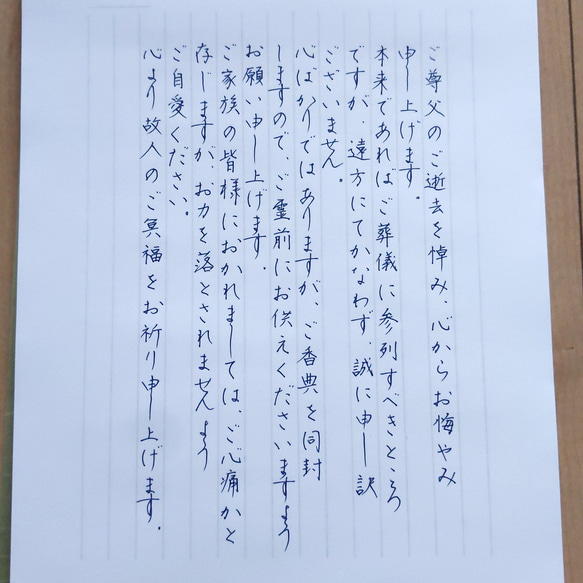 ご尊父のご逝去を悼み、心からお悔やみ
申し上げます。
本来であればご葬儀に参列すべきところ
ですが、遠方にてかなわず、誠に申し訳
ございません。
心ばかりではありますが、ご香典を同封
しますので、ご霊前にお供えくださいますよう
お願い申し上げます。
ご家族の皆様におかれましては、ご心痛かと
存じますが、お力を落とされませんよう
ご自愛ください。
心より故人のご冥福をお祈り申し上げます。